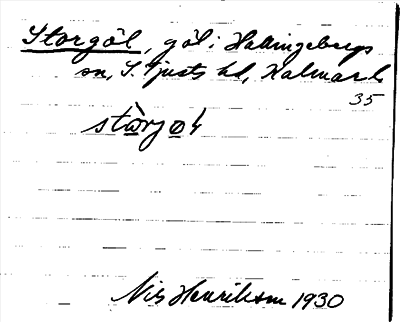 Storgöl, göl i Hallingebergs
sn, S. Tjusts hd, Kalmar l.
35
stòrjøl
Nils Henrikson 1930